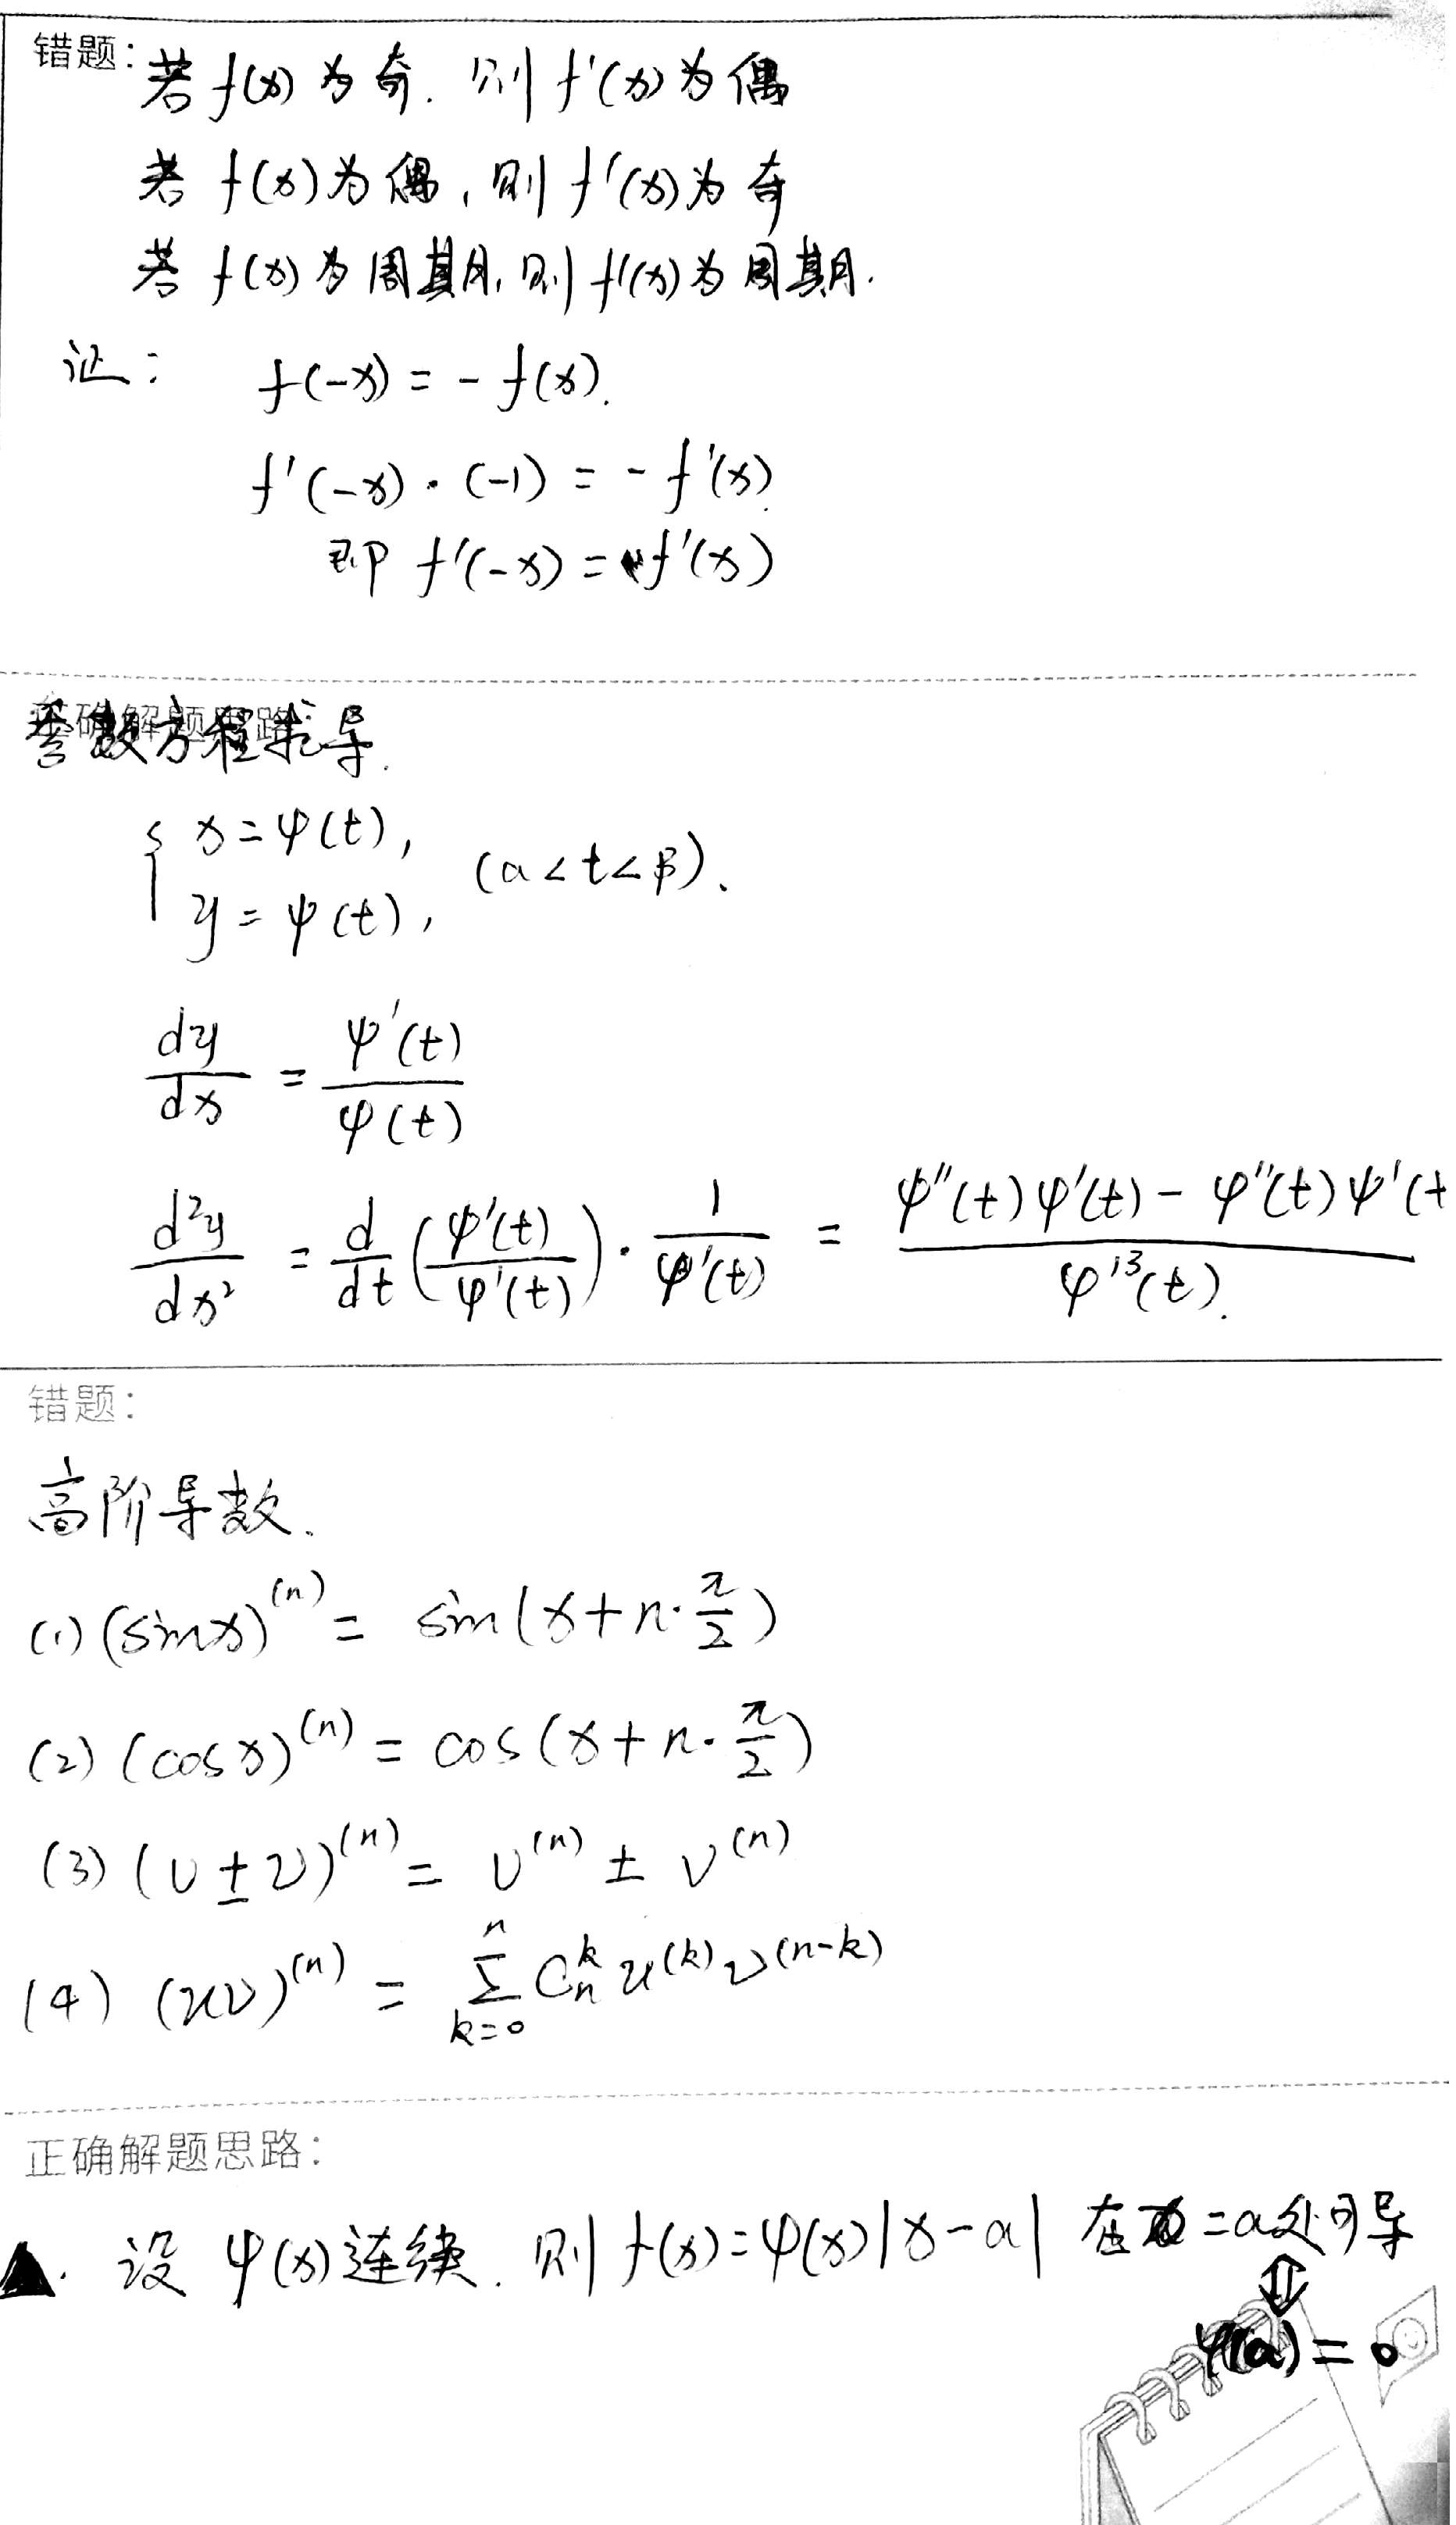 错题：
若 f(x) 为奇. 则 f'(x) 为偶
若 f(x) 为偶, 则 f'(x) 为奇
若 f(x) 为周期, 则 f'(x) 为周期.
证： f(-x) = - f(x).
f'(-x)·(-1) = - f'(x).
即 f'(-x) = f'(x)
正确解题思路：
参数方程求导.
{ x = φ(t),
y = ψ(t), (α < t < β).
dy/dx = ψ'(t)/φ(t)
d²y/dx² = d/dt (ψ'(t)/φ'(t)) · 1/φ'(t) = ψ''(t)φ'(t) - φ''(t)ψ'(t / φ'³(t).
错题：
高阶导数.
(1) (sinx)⁽ⁿ⁾ = sin(x + n·π/2)
(2) (cosx)⁽ⁿ⁾ = cos(x + n·π/2)
(3) (u ± v)⁽ⁿ⁾ = u⁽ⁿ⁾ ± v⁽ⁿ⁾
(4) (uv)⁽ⁿ⁾ = Σ_{k=0}^{n} C_n^k u^(k) v^(n-k)
正确解题思路：
▲. 设 φ(x) 连续. 则 f(x) = φ(x)|x - a| 在 x = a 处可导
⇕
φ(a) = 0